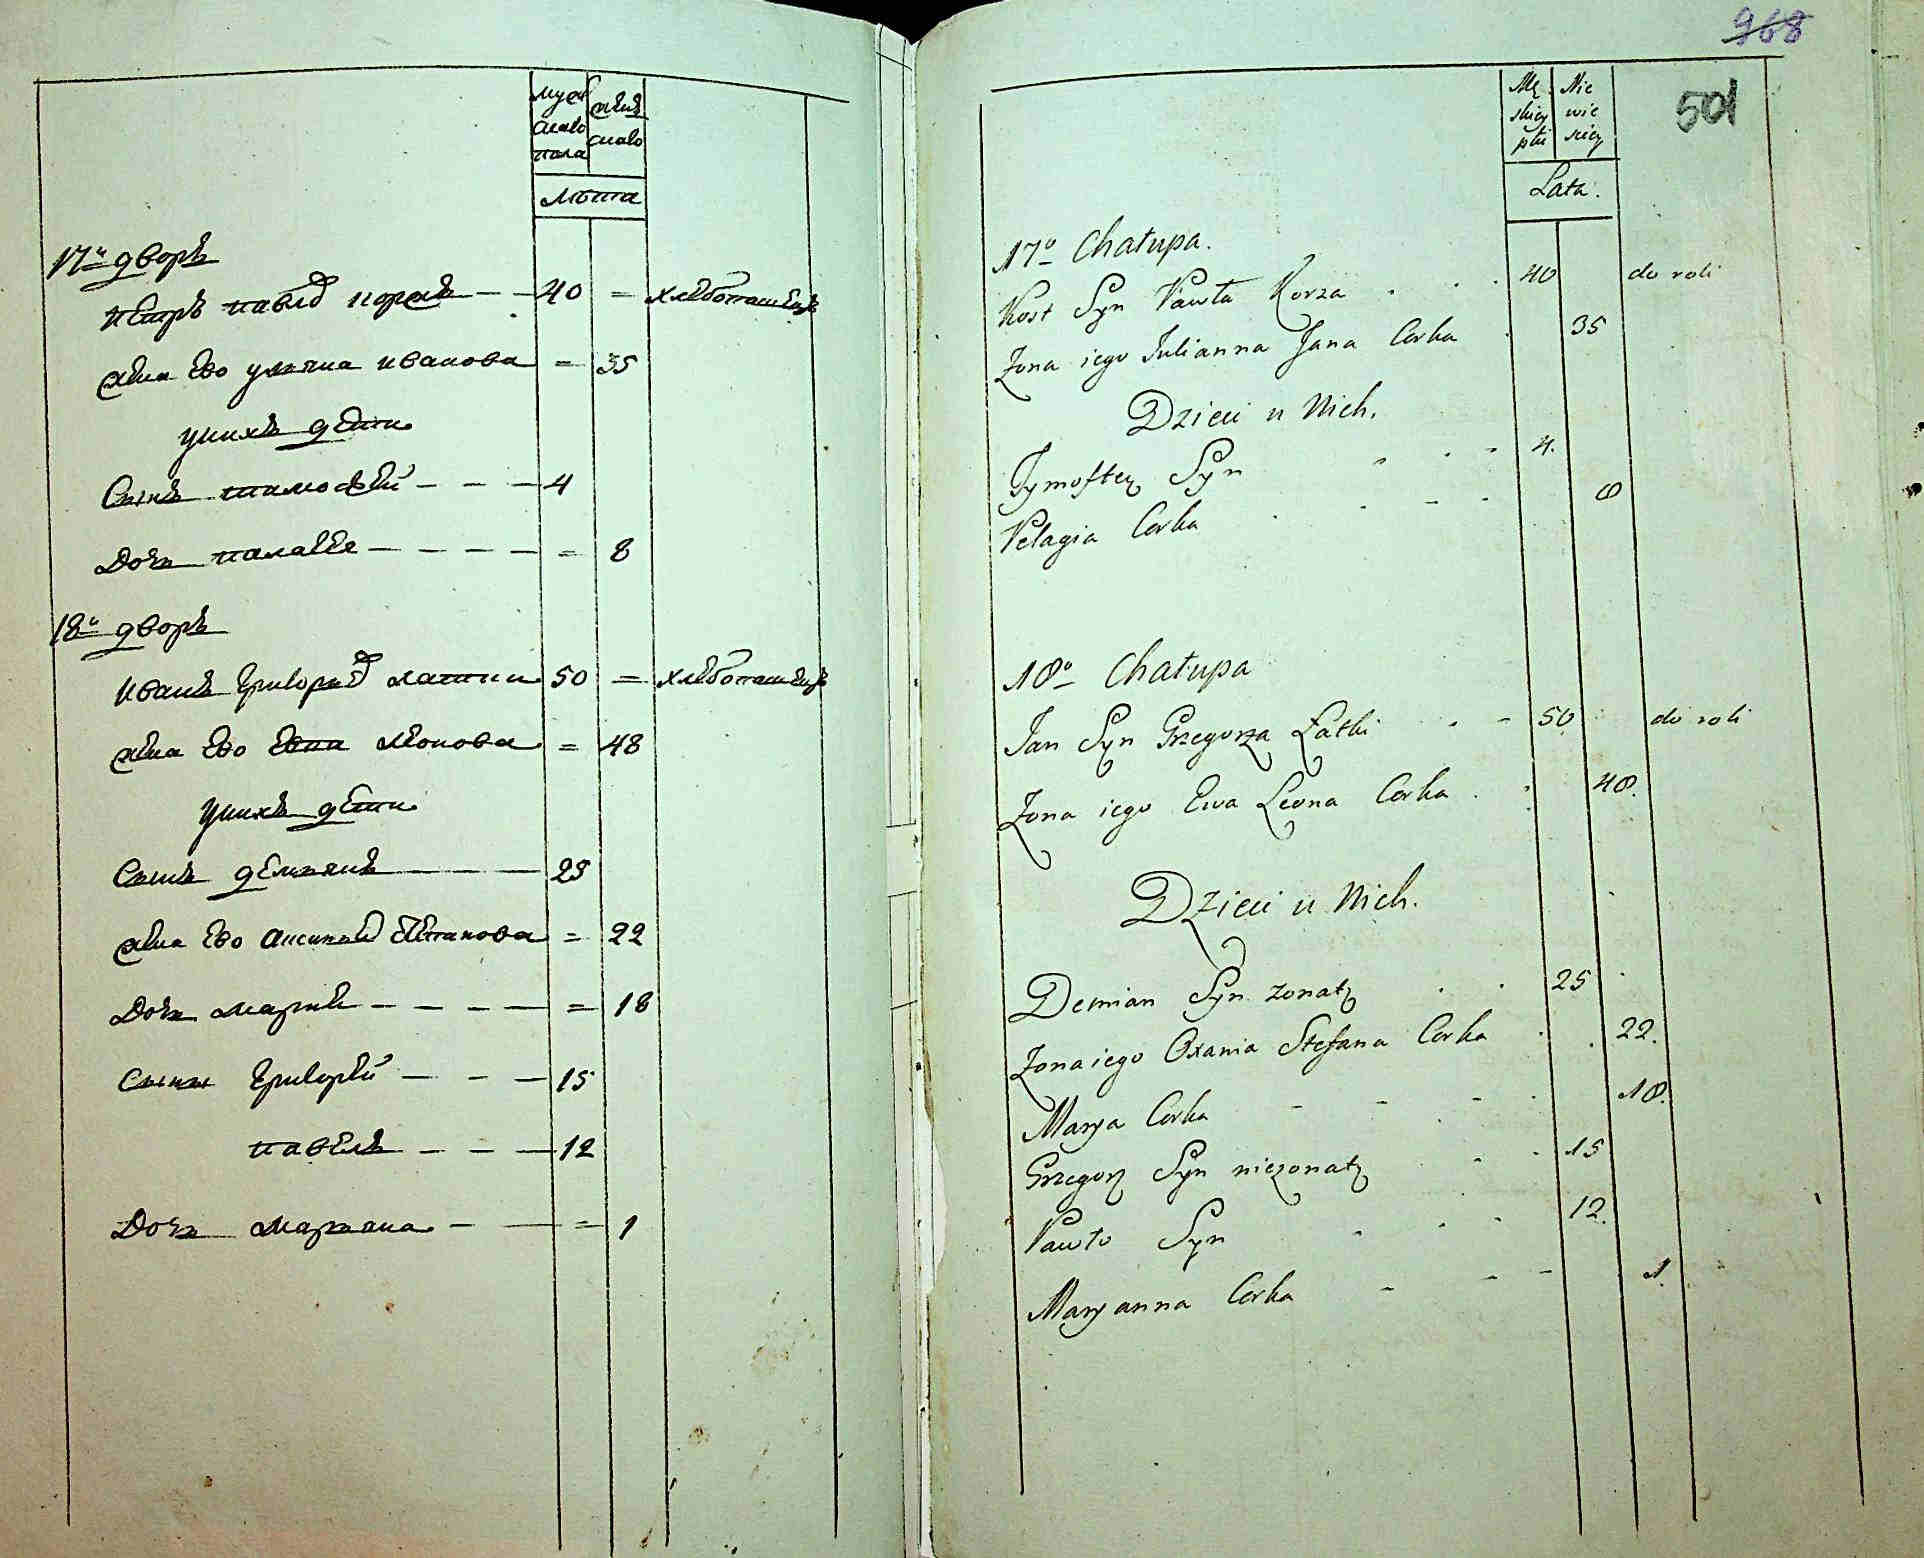 муж
скаго
пола
женс
скаго
Лѣта
17й дворъ
Петръ Павлов Корса 40 = хлебопашецъ
жена Ево Ульяна Иванова = 35
у нихъ дети
Сынъ Тимофей 4
Дочь Палагея = 8
18й дворъ
Иванъ Григорьев Латки 50 = хлебопашецъ
жена Ево Евва Леонова = 48
у нихъ дети
Сынъ Демьянъ 25
жена Ево Аксинья Степанова = 22
Дочь Марья = 18
Сыны Григорей 15
Павелъ 12
Дочь Марьяна = 1
968
501
Mę
skiey
płci
Nie
wie
sciey
Lata.
17o Chałupa.
Kost Syn Pawła Korza 40 do roli
Zona iego Iulianna Jana Corka 35
Dzieci u Nich.
Tymoftey Syn 4.
Pelagia Corka 8
18o Chałupa
Jan Syn Grzegorza Łatki 50 do roli
Zona iego Ewa Leona Corka 48.
Dzieci u Nich.
Demian Syn zonaty 25
Zona iego Oxania Stefana Corka 22.
Marya Corka 18.
Grzegorz Syn niezonaty 15
Pawło Syn 12.
Maryanna Corka 1.